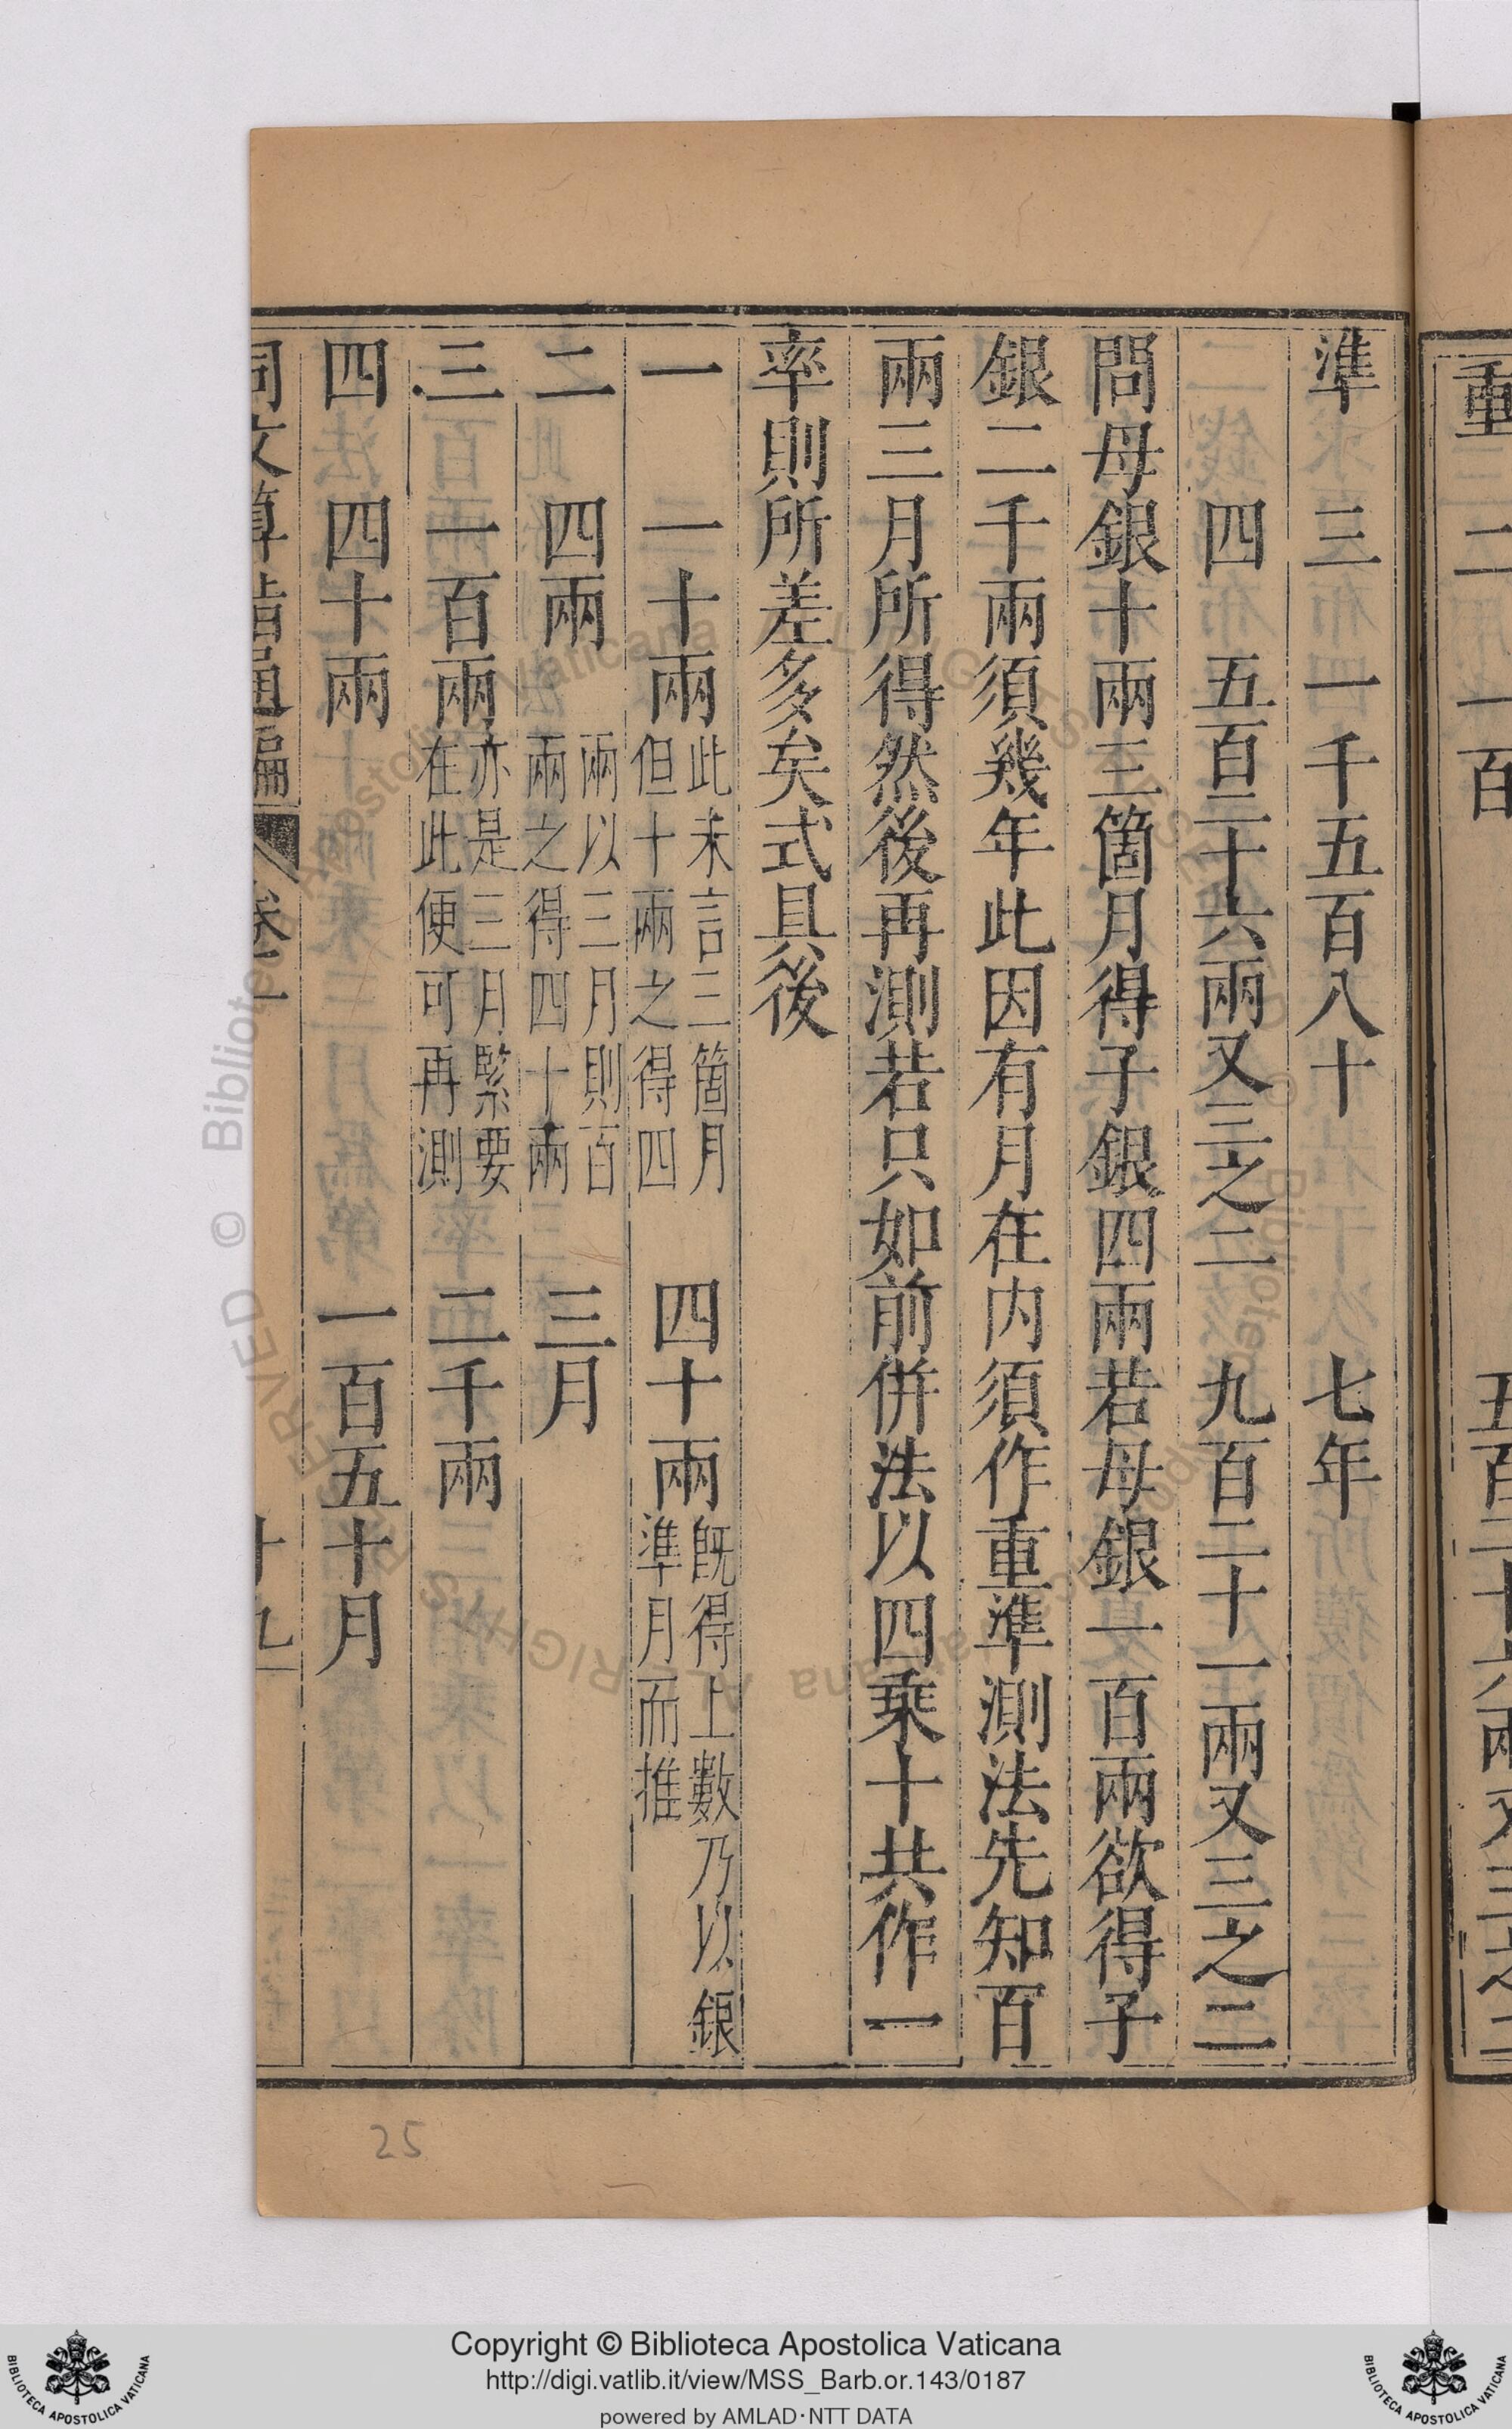 重 二 一百 五百二十六兩又三之二
準 三 一千五百八十 七年
四 五百二十六兩又三之二 九百二十一兩又三之二
問母銀十兩三箇月得子銀四兩若母銀一百兩欲得子
銀二千兩須幾年此因有月在内須作重準測法先知百
兩三月所得然後再測若只如前併法以四乘十共作一
率則所差多矣式具後
一 一十兩 此未言三箇月
但十兩之得四 四十兩 既得上數乃以銀
準月而推
二 四兩 兩以三月則百
兩之得四十兩 三月
三 一百兩 亦是三月緊要
在此便可再測 二千兩
四 四十兩 一百五十月
同文算指通編 卷一 十九
25
Copyright © Biblioteca Apostolica Vaticana
http://digi.vatlib.it/view/MSS_Barb.or.143/0187
powered by AMLAD·NTT DATA
BIBLIOTECA APOSTOLICA VATICANA
BIBLIOTECA APOSTOLICA VATICANA